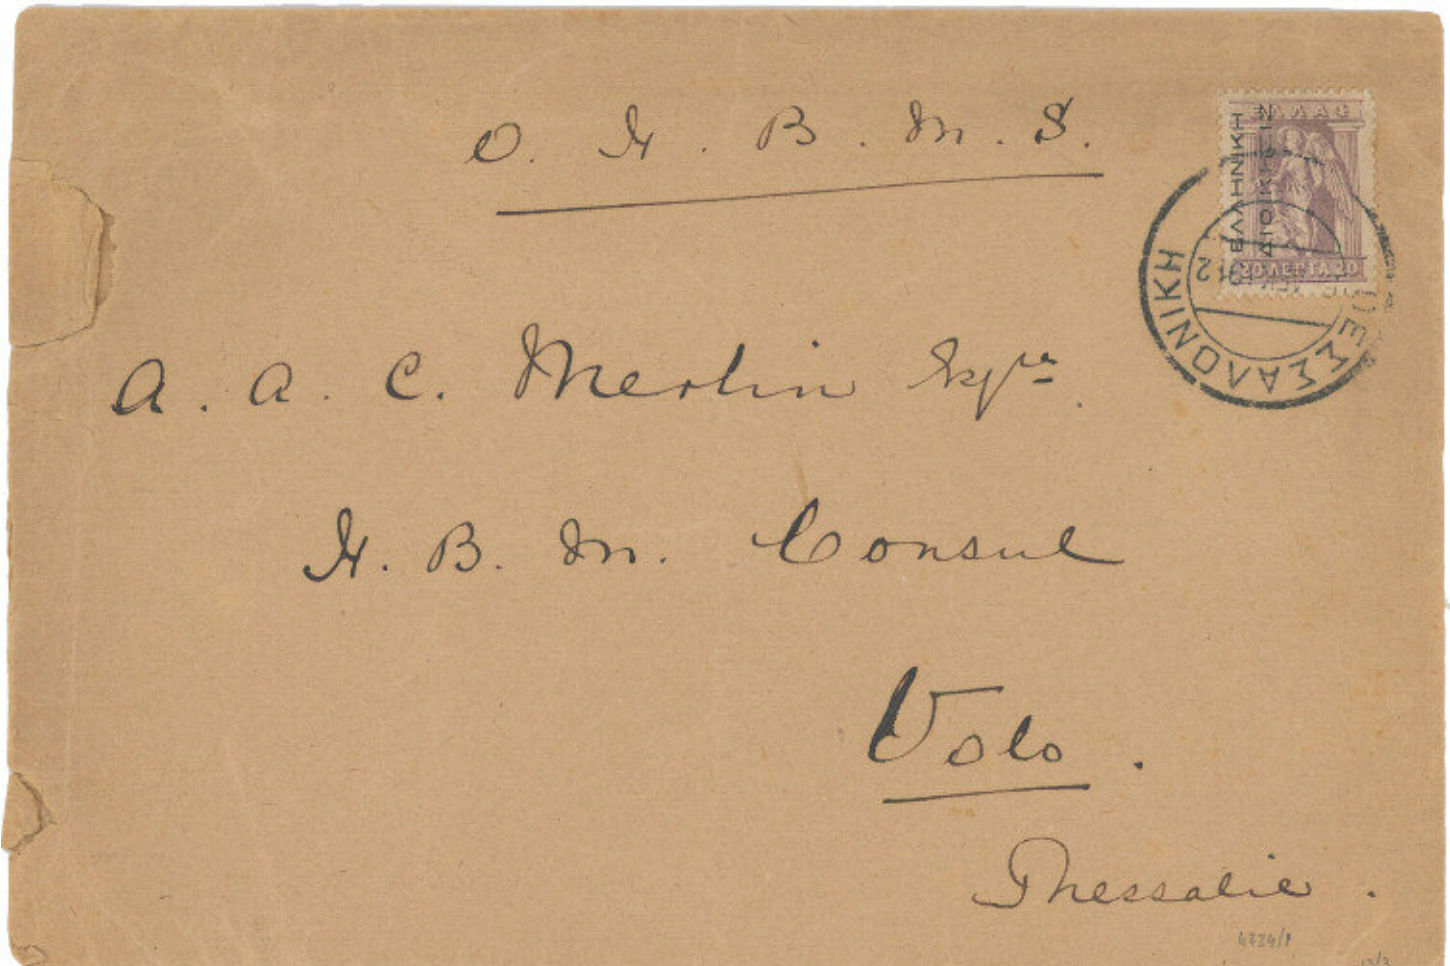 O. H. B. M. S.
ΕΛΛΑΣ
ΕΛΛΗΝΙΚΗ
ΔΙΟΙΚΗΣΙΣ
20 ΛΕΠΤΑ 20
ΘΕΣΣΑΛΟΝΙΚΗ
A. A. C. Merlin Esqre.
H. B. M. Consul
Volo.
Thessalie.
4224/1